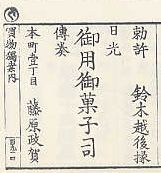 勅許 鈴木越後掾
日光
御用御菓子司
傳奏
本町壹丁目 藤原政賀
買物獨案内